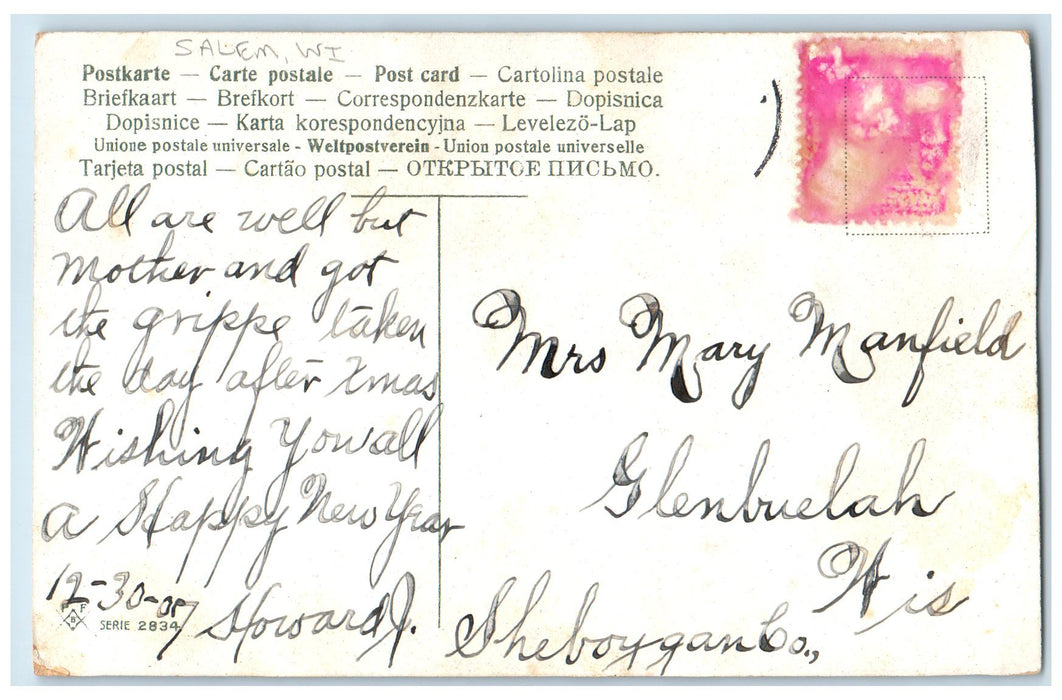 SALEM, WI
Postkarte — Carte postale — Post card — Cartolina postale
Briefkaart — Brefkort — Correspondenzkarte — Dopisnica
Dopisnice — Karta korespondencyjna — Levelező-Lap
Unione postale universale - Weltpostverein - Union postale universelle
Tarjeta postal — Cartão postal — ОТКРЫТОЕ ПИСЬМО.
All are well but
Mother and got
the grippe taken
the day after Xmas
Wishing You all
a Happy New Year
12-30-07
Howard J.
P F
B
SERIE 2834
Mrs Mary Manfield
Glenbuelah
Wis
Sheboygan Co.,